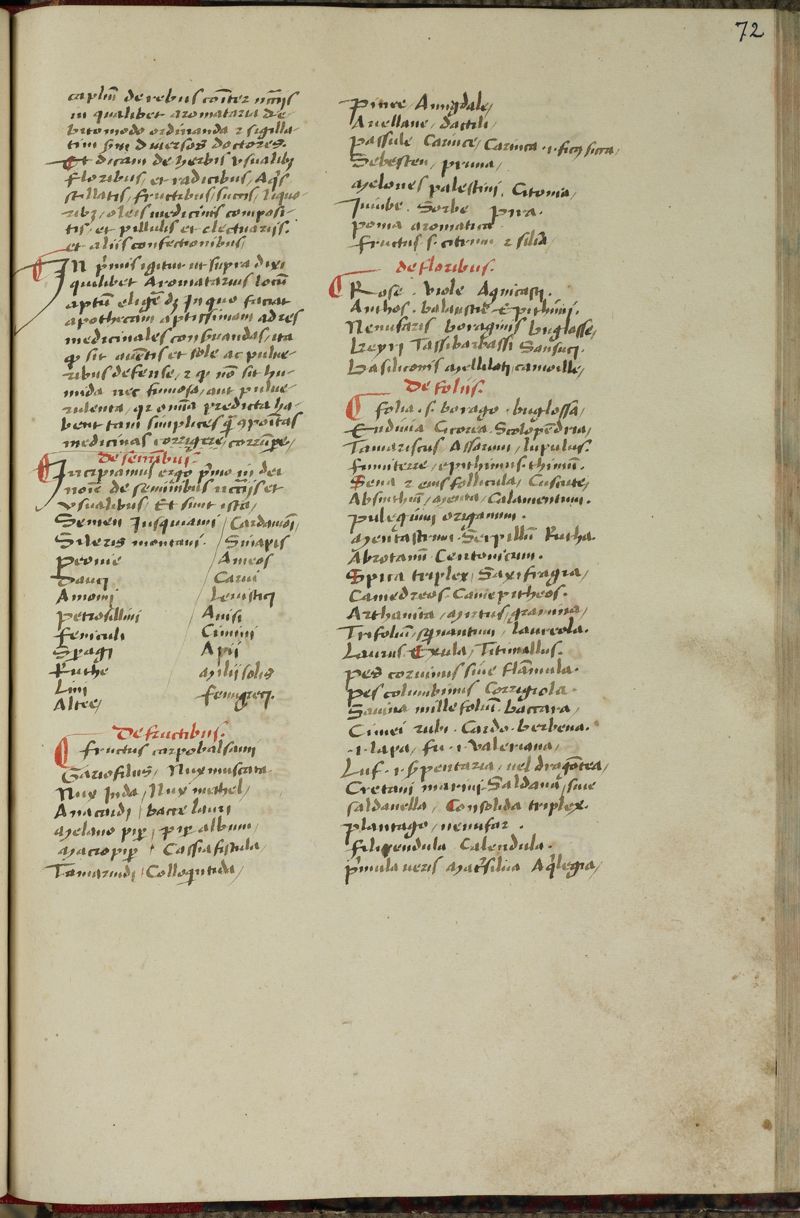 72
caplm de rebus coiter nccijs
in qualibet aromataria de
bito modo ordinanda ⁊ sigilla
tim sm diuersos doctores.
Et dicam de herbis vsualibꝫ
floribus, et radicibus, Aqis
stillatis, fructibus, succis, liquo
ribꝫ, oleis medicinis composi
tis, et pillulis et electuarijs.
et alijs confectionibus,
IN pimis igitur ut supra dixi
quilibet Aromatarius locum
aptu eligere dꝫ In quo faciat
apothecam aptissimam ad res
medicinales conseruandas, ita
qꝫ sit auentis et sole ac pulue
ribus defense, ⁊ qꝫ no sit hu
mida nec fumosa, aut pulue
rulenta, qꝛ oma predicta ha
bent tam simplices qm qpoitas
medicinas corrigere, corrupe,
De seminibus.
Incipiamus ergo pmo in dei
noie de seminibus nccijs et
vsualibus, Et sunt ista,
Semen Iusquiami / Cardamoi,
Sileris montani. Sinapis
Peonie Ameos
Dauci Carui
Amomi Leuistici
Petrosillini Anisi
Feniculi Cimini
Spagi Apij
Ruthe Milij solis
Lini fenugreci.
Altee,
De fructibus.
fructus carpobalsami
Gariofilus, Nux muscata
Nux Inda, Nux methel,
Anacardi, bacce lauri
Melano pip, pip album,
Macropip, Cassiafistula,
Tamarindi, Colloquintida,
Pinee, Amigdale,
Auellane, dactili,
Passule Carnice, Carnica .i. ficus sicca,
Sebesten, pruna,
Melones palestini, Citonia,
Iuiube. Sorbe pira.
Poma aromatica
Fructus s. citrini ⁊ silia
De floribus.
Rose. Viole Agnicasti.
Anthos. balaustie Epithimi.
Nenufaris boraginis buglosse,
Keyri Tassibarbassi Sansuci.
Basiliconis Melliloti, camoille,
De foliis.
folia .s. borago. buglossa,
Endiuia Cicorea. Scolopendria,
Tamariscus Assarum, lupulus.
fumiterre, epithimus. thimu.
Sena ⁊ eius follicula, Cuscute,
Absinthiu, Menta, Calamentum.
pulegium origanum.
Mentastrum. Serpillu Rutha.
Abrotanu Centonicum.
Spica triplex, Saxifragia,
Camedreos. Camepitheos.
Arthanita, Mirtus, gramina,
Trifoliu, squinantum, laureola.
Laurus Exula, Titimallus.
pes coruinus siue flamula.
pes columbinus Corrigiola.
Sauina millefoliu. baccara,
Cimei rubi. Cardo. berbena.
.i. lapa, fu .i. Valeriana,
Luf .i. spentaria, vel dragotea,
Cretani marini. Saldana, siue
saldanella, Consolida triplex.
plantago, nenufar.
filipendula Calendula.
pimula veris Matrsilua Aqlegia,